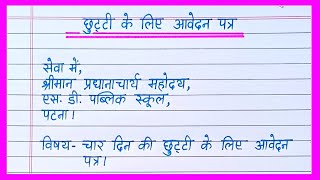 छुट्टी के लिए आवेदन पत्र
सेवा में,
श्रीमान प्रधानाचार्य महोदय,
एस. डी. पब्लिक स्कूल,
पटना।
विषय- चार दिन की छुट्टी के लिए आवेदन
पत्र।